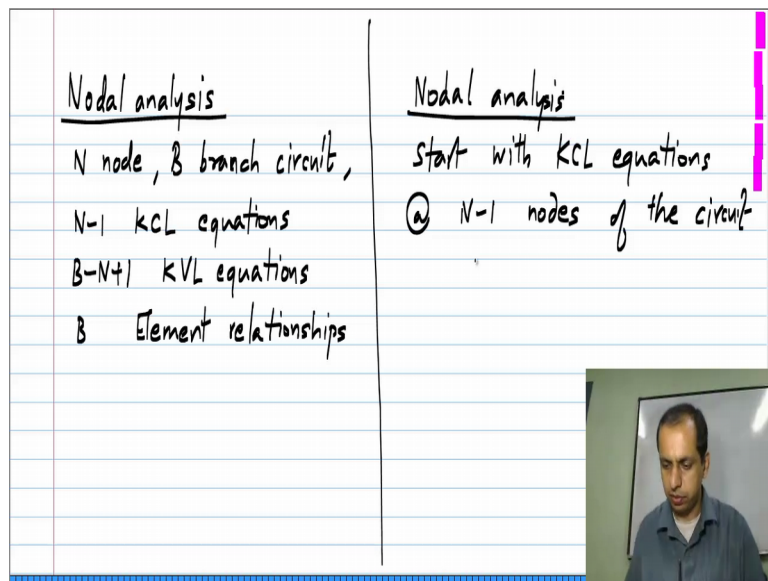 Nodal analysis
N node, B branch circuit,
N-1 KCL equations
B-N+1 KVL equations
B Element relationships
Nodal analysis
Start with KCL equations
@ N-1 nodes of the circuit